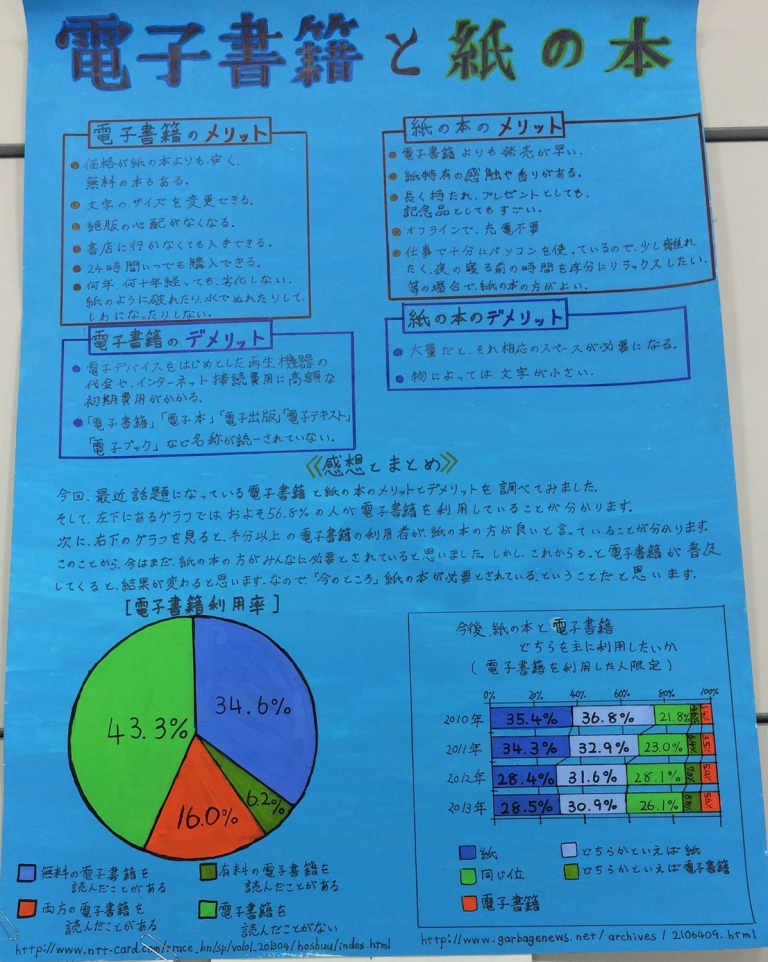 電子書籍と紙の本
電子書籍のメリット
価格が紙の本よりも、安く、
無料の本もある。
文字のサイズを変更できる。
絶版の心配がなくなる。
書店に行かなくても入手できる。
24時間いつでも購入できる。
何年、何十年経っても、劣化しない。
紙のように破れたり、水でぬれたりして、
しわになったりしない。
紙の本のメリット
電子書籍よりも発売が早い。
紙特有の感触や香りがある。
長く持たれ、プレゼントとしても、
記念品としてもすごい。
オフラインで、充電不要
仕事で十分にパソコンを使っているので、少し離れ
たく、夜の寝る前の時間を存分にリラックスしたい。
等の場合で、紙の本の方がよい。
電子書籍のデメリット
電子デバイスをはじめとした再生機器の
代金や、インターネット接続費用に高額な
初期費用がかかる。
「電子書籍」「電子本」「電子出版」「電子テキスト」
「電子ブック」など名称が統一されていない。
紙の本のデメリット
大量だと、それ相応のスペースが必要になる。
物によっては、文字が小さい。
《感想とまとめ》
今回、最近話題になっている電子書籍と紙の本のメリットとデメリットを調べてみました。
そして、左下にあるグラフではおよそ56.8%の人が電子書籍を利用していることが分かります。
次に、右下のグラフを見ると、半分以上の電子書籍の利用者が、紙の本の方が良いと言っていることが分かります。
このことから、今はまだ、紙の本の方がみんなに必要とされていると思いました。しかし、これからもっと電子書籍が普及
してくると、結果が変わると思います。なので「今のところ」紙の本が必要とされている、ということだと思います。
[電子書籍利用率]
34.6%
43.3%
6.2%
16.0%
無料の電子書籍を
読んだことがある
有料の電子書籍を
読んだことがある
両方の電子書籍を
読んだことがある
電子書籍を
読んだことがない
http://www.ntt-card.com/trace_bn/sp/vol01_201304/hoshuu/index.html
今後、紙の本と電子書籍
どちらを主に利用したいか
(電子書籍を利用した人限定)
0% 20% 40% 60% 80% 100%
2010年 35.4% 36.8% 21.8%
2011年 34.3% 32.9% 23.0%
2012年 28.4% 31.6% 28.1%
2013年 28.5% 30.9% 26.1%
紙 どちらかといえば紙
同じ位 どちらかといえば電子書籍
電子書籍
http://www.garbagenews.net/archives/2106409.html